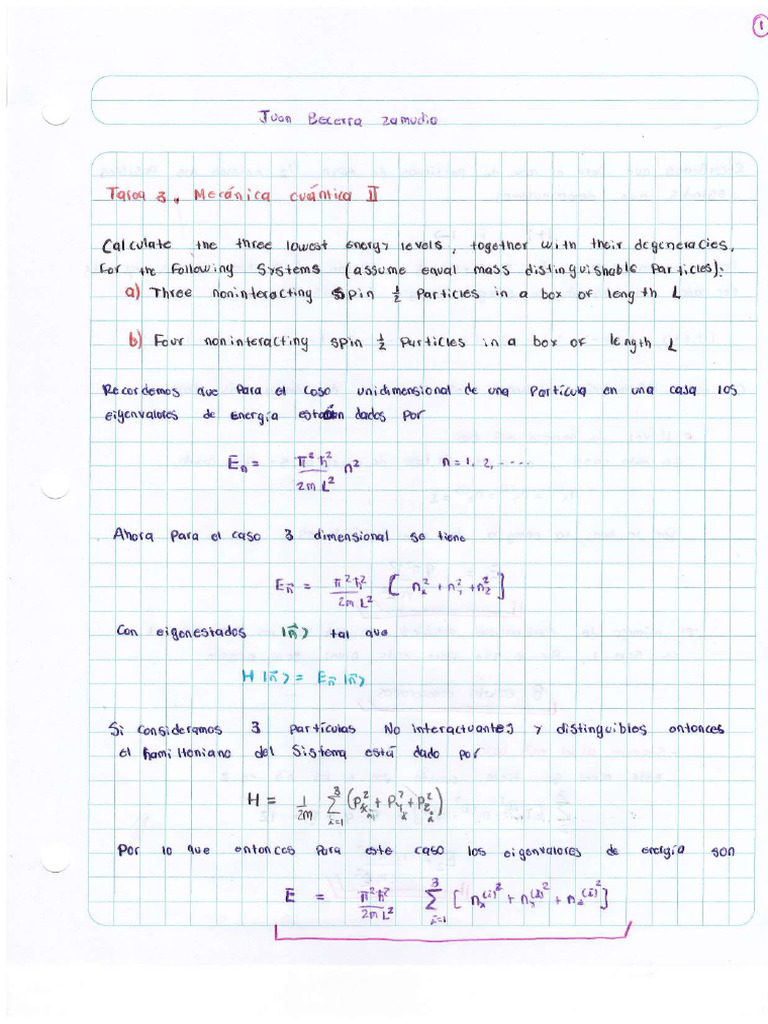 1
Juan Becerra Zamudio
Tarea 3. Mecánica cuántica II
Calculate the three lowest energy levels, together with their degeneracies,
for the following systems (assume equal mass distinguishable particles):
a) Three noninteracting spin 1/2 particles in a box of length L
b) Four noninteracting spin 1/2 particles in a box of length L
Recordemos que para el caso unidimensional de una partícula en una caja los
eigenvalores de energía están dados por
E_n = π²ħ²/2mL² n²    n = 1, 2, .....
Ahora para el caso 3 dimensional se tiene
E_n⃗ = π²ħ²/2mL² [n_x² + n_y² + n_z²]
Con eigenestados |n⃗⟩ tal que
H|n⃗⟩ = E_n⃗ |n⃗⟩
Si consideramos 3 partículas no interactuantes y distinguibles entonces
el hamiltoniano del sistema está dado por
H = 1/2m Σ_{i=1}^{3} (P_{x_i}² + P_{y_i}² + P_{z_i}²)
Por lo que entonces para este caso los eigenvalores de energía son
E = π²ħ²/2mL² Σ_{i=1}^{3} [n_x^{(i)2} + n_y^{(i)2} + n_z^{(i)2}]